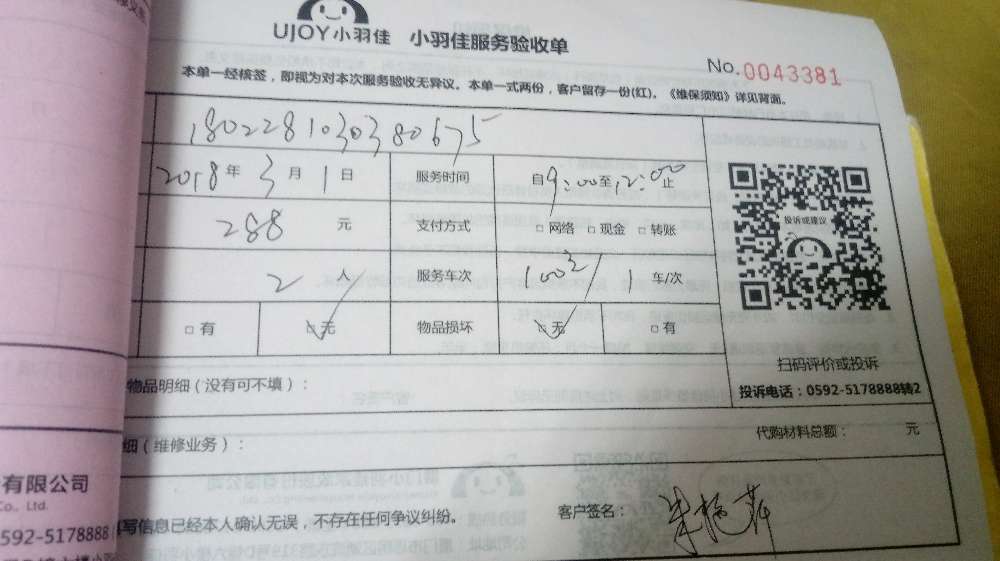 UJOY小羽佳 小羽佳服务验收单
No.0043381
本单一经核签，即视为对本次服务验收无异议。本单一式两份，客户留存一份(红)。《维保须知》详见背面。
1802281030380675
2018年3月1日 服务时间 自9:00至12:00止
288 元 支付方式 □网络 □现金 □转账
2 人 服务车次 1 车/次
□有 □无 物品损坏 □无 □有
投诉或建议
扫码评价或投诉
投诉电话：0592-5178888转2
物品明细（没有可不填）：
细（维修业务）： 代购材料总额： 元
有限公司
Co., Ltd.
592-5178888
写信息已经本人确认无误，不存在任何争议纠纷。 客户签名：